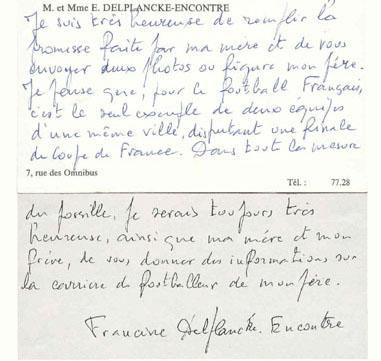 M. et Mme E. DELPLANCKE-ENCONTRE
Je suis très heureuse de remplir la
promesse faite par ma mère et de vous
envoyer deux photos ou figure mon père.
Je pense que, pour le football Français,
c'est le seul exemple de deux equipes
d'une même ville, disputant une finale
de Coupe de France. Dans toute la mesure
7, rue des Omnibus
Tél. : 77.28
du possible, je serais toujours très
heureuse, ainsi que ma mère et mon
frère, de vous donner des informations sur
la carrière de footballeur de mon père.
Francine Delplancke. Encontre